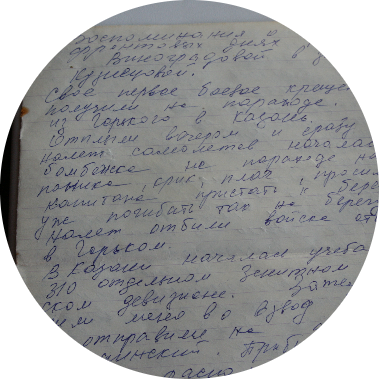 Воспоминания о
фронтовых днях
Виноградовой в
Кузнецовой.
Свое первое боевое крещен
получили на пароходе.
из Горького в Казань.
Отплыли вечером и сразу
налет самолетов начала
бомбежка на пароходе на
паника, крик, плач, проси
капитана пристать к бере
уже погибать так на берег
Налет отбили войска от
в Горьком.
В Казани началась учеба
310 отдельном зенитном
ском дивизионе. Зате
меня во взвод
отправили на